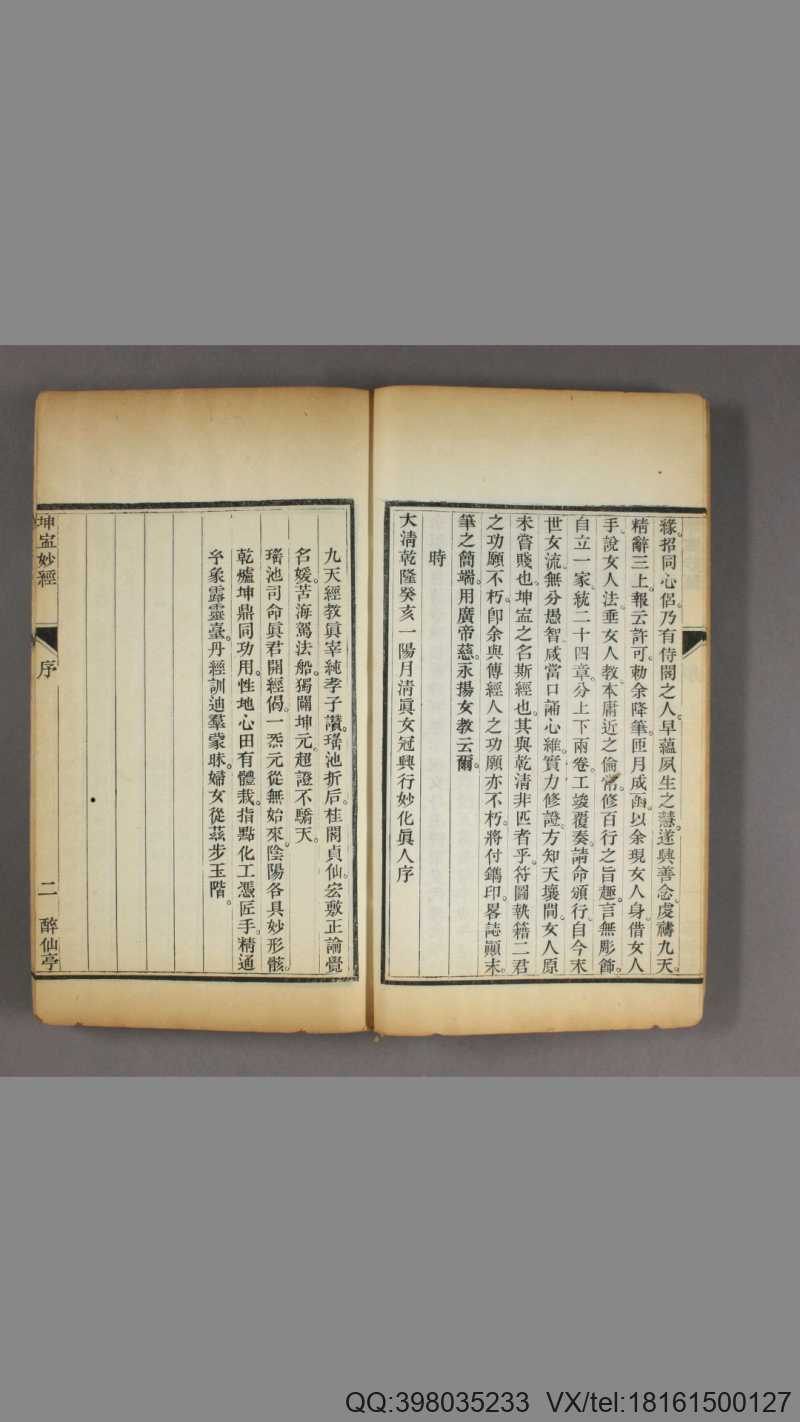 緣。招同心侶。乃有侍閣之人。早蘊夙生之慧。遂興善念。虔禱九天。
精辭三上。報云許可。勅余降筆。匝月成函。以余現女人身。借女人
手。說女人法。垂女人教。本庸近之倫常。修百行之旨趣。言無彫飾。
自立一家。統二十四章。分上下兩卷。工竣覆奏。請命頒行。自今末
世女流。無分愚智。咸當口誦心維。實力修證。方知天壤間。女人原
未嘗賤也。坤寍之名斯經也。其與乾清非匹者乎。符圖執籍二君
之功願不朽。卽余與傳經人之功願亦不朽。將付鐫印。畧誌顚末。
筆之簡端。用廣帝慈。永揚女教云爾。
時
大清乾隆癸亥一陽月清眞女冠興行妙化眞人序
九天經教眞宰純孝子讚。瑤池折后。桂閣貞仙。宏敷正論覺
名媛。苦海駕法船。獨闡坤元。超證不驕天。
瑤池司命眞君開經偈。一炁元從無始來。陰陽各具妙形骸。
乾爐坤鼎同功用。性地心田有體裁。指點化工憑匠手。精通
象露靈臺。丹經訓迪羣蒙昧。婦女從茲步玉階。
坤寍妙經
序
二
醉仙亭
QQ:398035233 VX/tel:18161500127